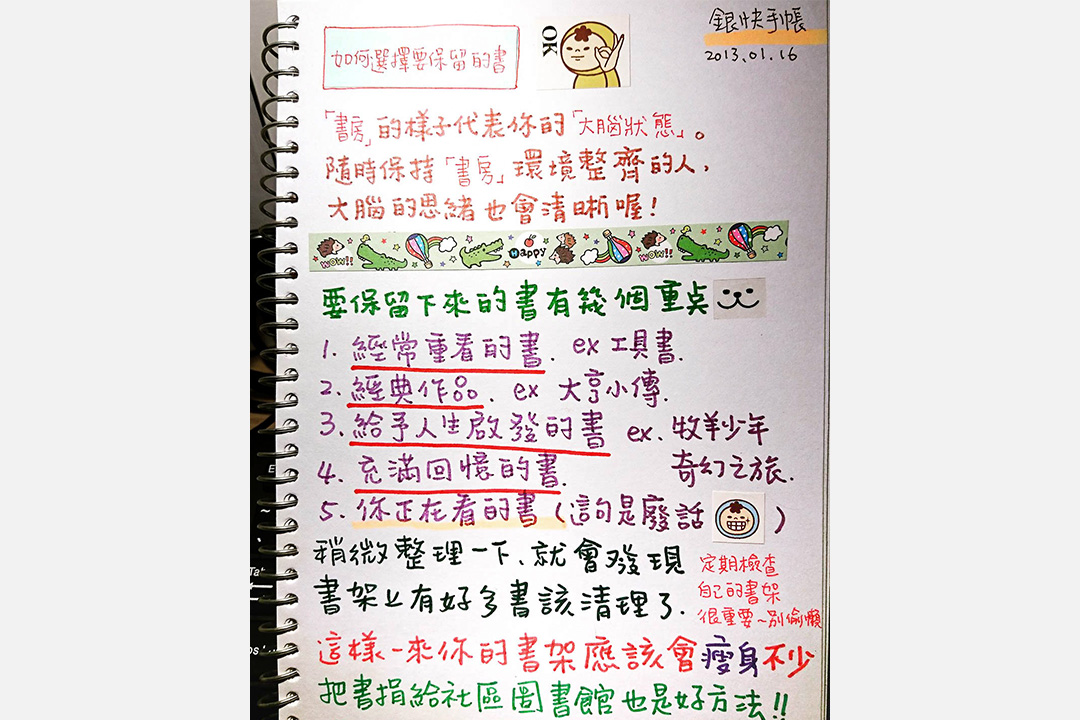 銀快手帳
2013.01.16
如何選擇要保留的書
OK
「書房」的樣子代表你的「大腦狀態」。
隨時保持「書房」環境整齊的人,
大腦的思緒也會清晰喔!
WOW!! Happy WOW!!
要保留下來的書有幾個重点
1. 經常重看的書. ex 工具書.
2. 經典作品. ex 大亨小傳.
3. 給予人生啟發的書 ex. 牧羊少年
奇幻之旅.
4. 充滿回憶的書.
5. 你正在看的書(這句是廢話 )
稍微整理一下、就會發現
書架上有好多書該清理了.
定期檢查
自己的書架
很重要~別偷懶
這樣一來你的書架應該會瘦身不少
把書捐給社區圖書館也是好方法!!